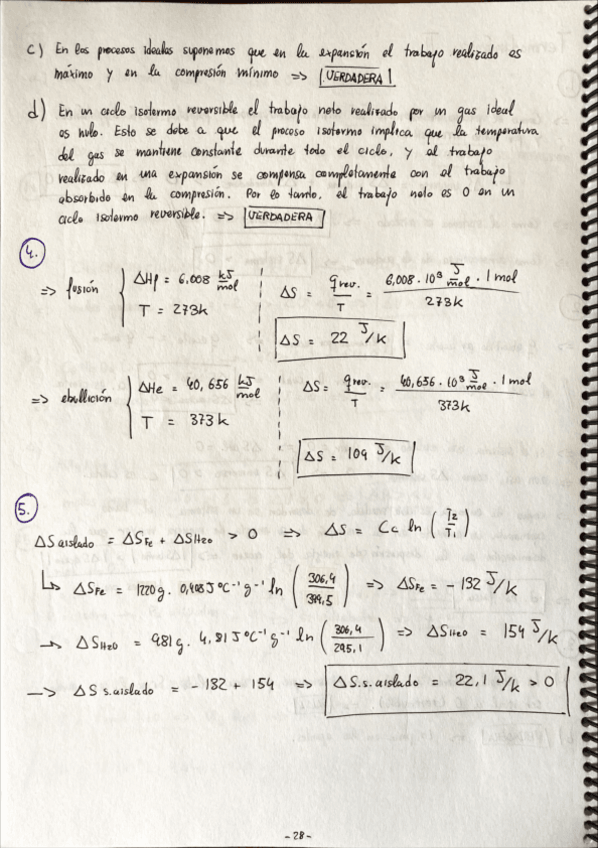 c) En los procesos ideales suponemos que en la expansión el trabajo realizado es
máximo y en la compresión mínimo => VERDADERA
d) En un ciclo isotermo reversible el trabajo neto realizado por un gas ideal
es nulo. Esto se debe a que el proceso isotermo implica que la temperatura
del gas se mantiene constante durante todo el ciclo, y el trabajo
realizado en una expansión se compensa completamente con el trabajo
absorbido en la compresión. Por lo tanto, el trabajo neto es 0 en un
ciclo isotermo reversible. => VERDADERA
4.
=> fusión { ΔHf = 6,008 kJ/mol
T = 273k
ΔS = qrev./T = 6,008 · 10³ J/mol · 1 mol / 273k
ΔS = 22 J/k
=> ebullición { ΔHe = 40,656 kJ/mol
T = 373k
ΔS = qrev./T = 40,656 · 10³ J/mol · 1 mol / 373k
ΔS = 109 J/k
5.
ΔS aislado = ΔSFe + ΔSH2O > 0 => ΔS = Ce ln (T2/T1)
↳ ΔSFe = 1220g · 0,408 J°C⁻¹g⁻¹ ln (306,4/399,5) => ΔSFe = -132 J/k
-> ΔSH2O = 981g · 4,81 J°C⁻¹g⁻¹ ln (306,4/295,1) => ΔSH2O = 154 J/k
-> ΔS s.aislado = -132 + 154 => ΔS.s.aislado = 22,1 J/k > 0
-28-